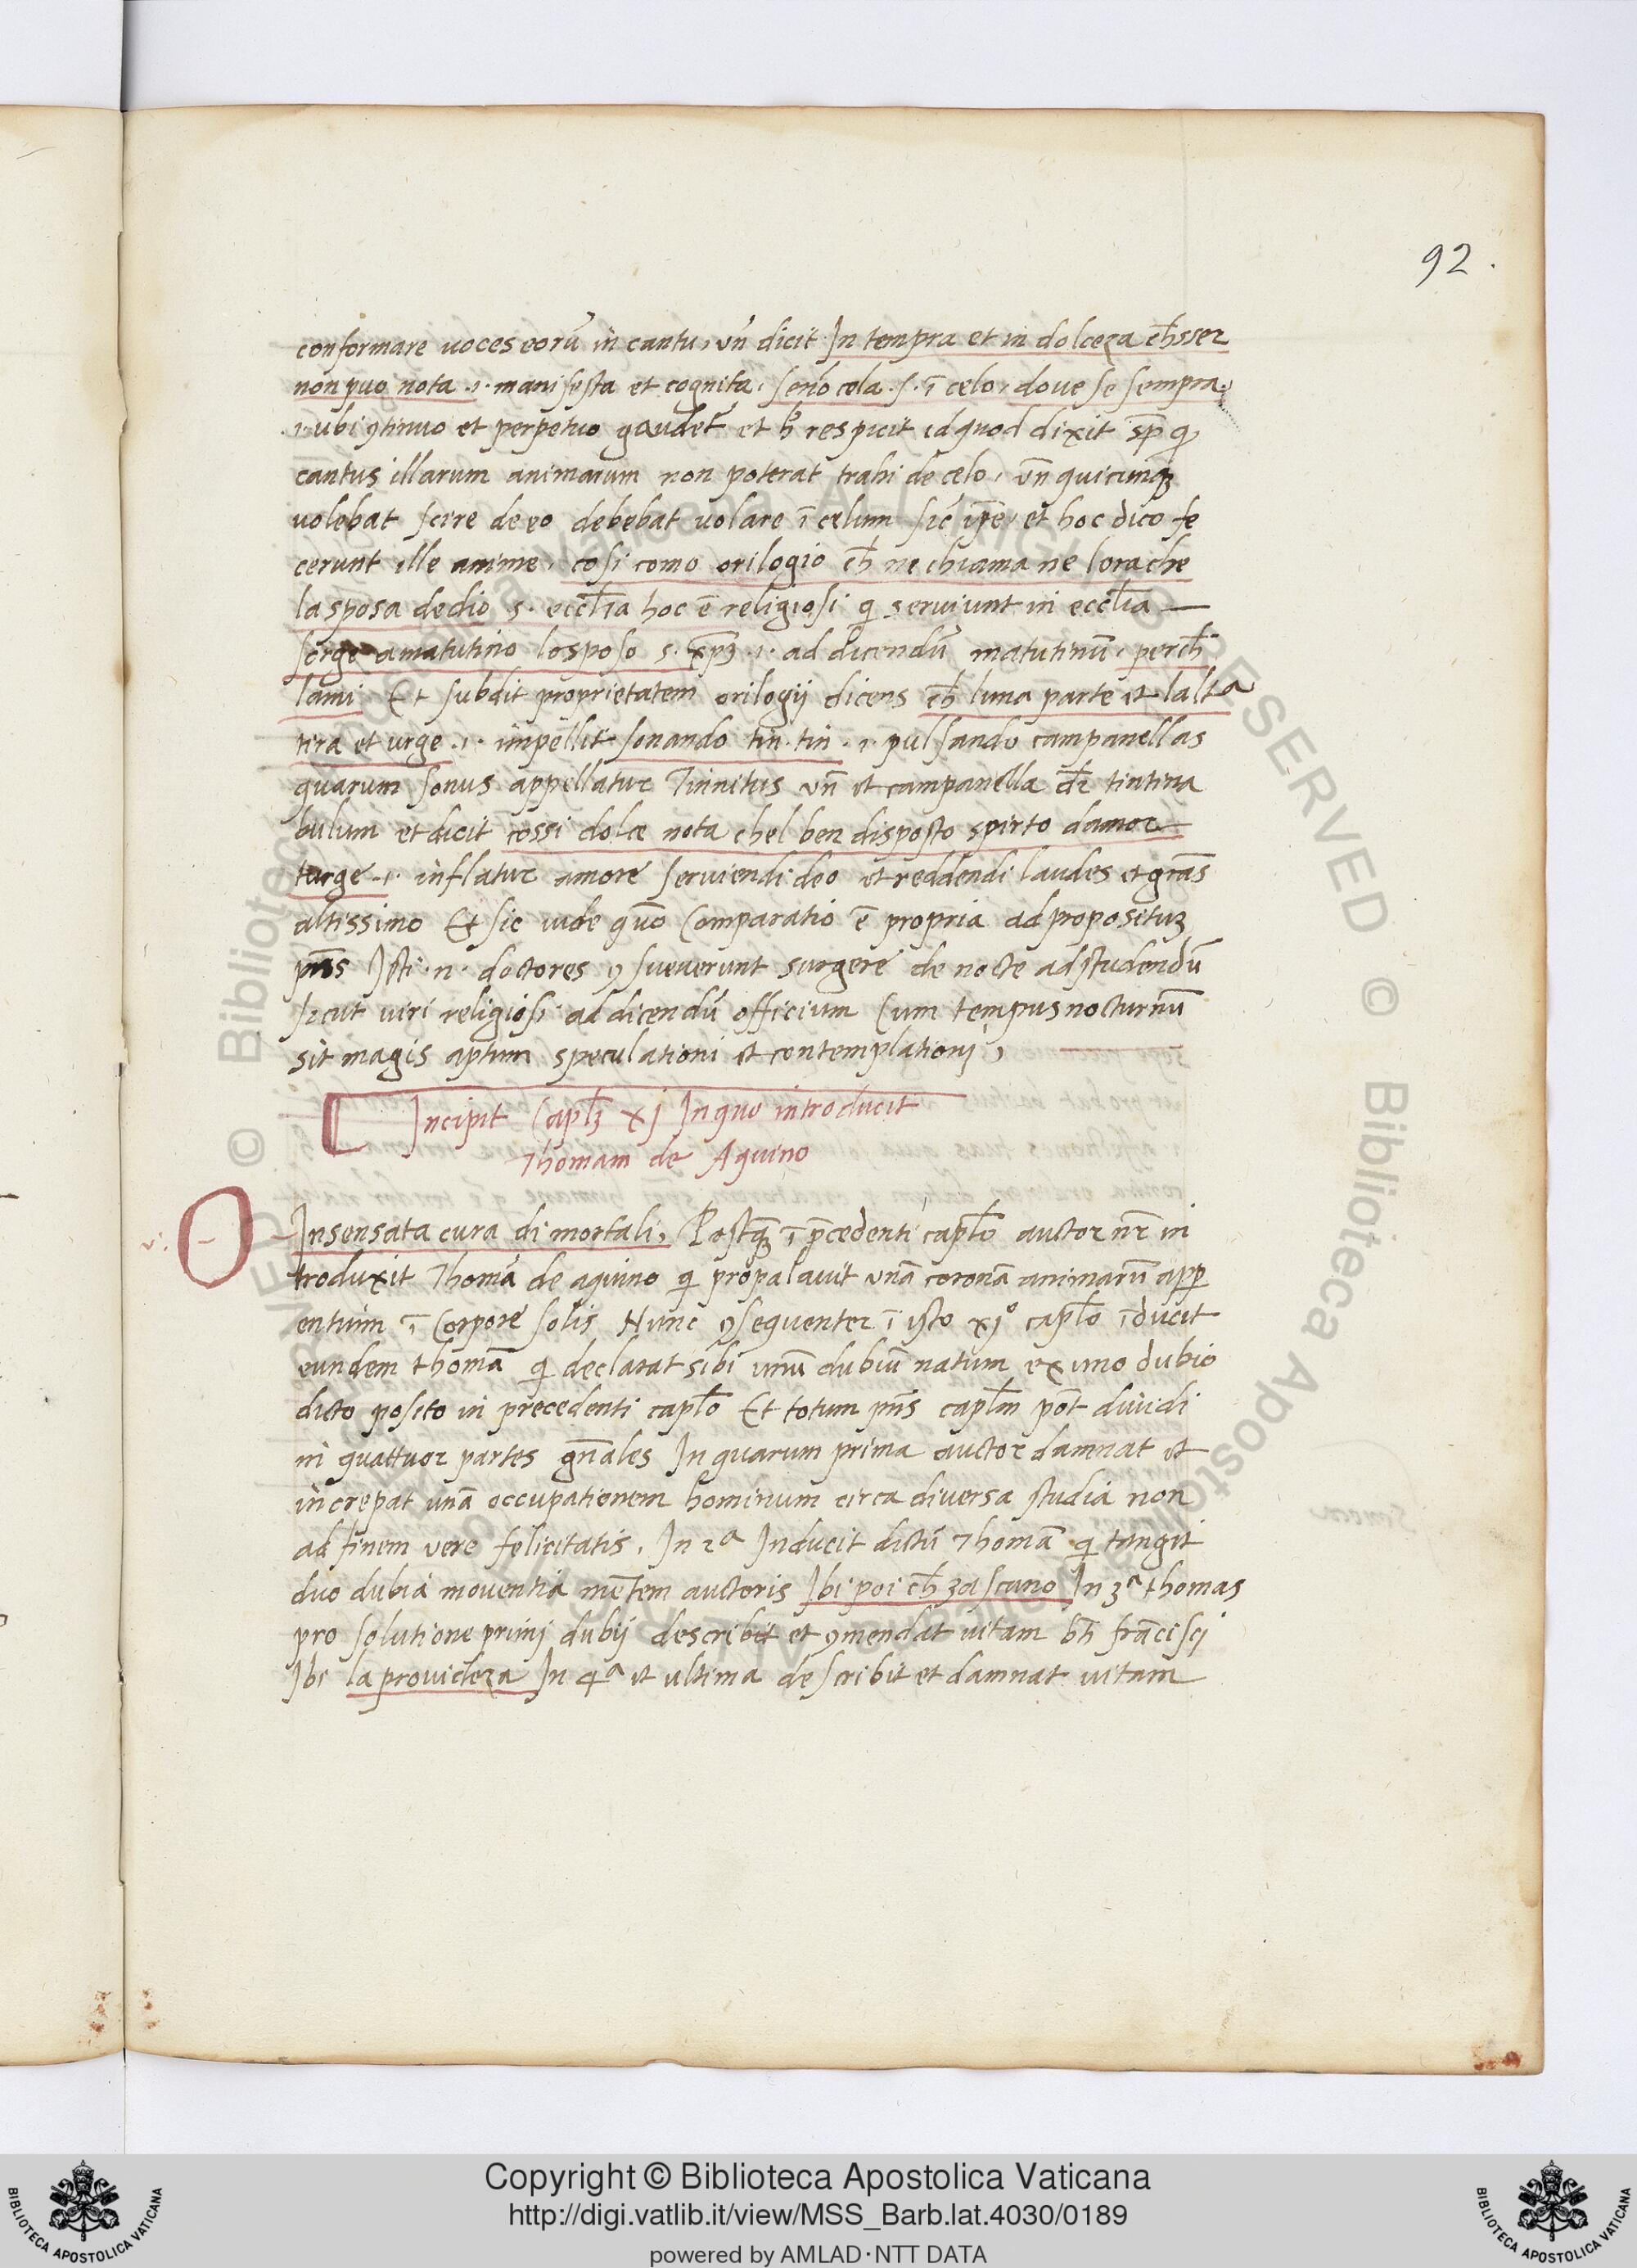 92.
conformare uoces eorū in cantu, vn̄ dicit In tempra et in dolceza ch̄sser
non puo nota .i. manifesta et cognita, senō cola .s. ī celo, doue se sempra,
.i. ubi ꝯtinuo et perpetuo gaudet̄ et h̄ respicit id quod dixit sp̄ qi
cantus illarum animarum non poterat trahi de celo, vn̄ quicunqꝫ
uolebat scire de eo debebat uolare ī celum sic ip̄e, et hoc dico fe
cerunt ille anime, cosi como orilogio ch̄ ne chiama ne lora che
la sposa de dio s. eccl̄ia hoc ē religiosi qi seruiunt in eccl̄ia
sorge a matutino lo sposo s. xp̄ꝫ .i. ad dicendū matutinū, perch̄
lami Et subdit proprietatem orilogij dicens ch̄ luna parte et laltra
tira et urge .i. impellit sonando tin. tin .i. pulsando campanellas
quarum sonus appellatur Tinnitus vn̄ et campanella dr̄ tintina
bulum et dicit cossi dolce nota chel ben disposto spirto damor
turge .i. inflatur amore seruiendi deo et reddendi laudes et gr̄as
altissimo Et sic uide quō Comparatio ē propria ad proposituꝫ
pn̄s Isti .n. doctores ꝯsueuerunt surgere de nocte ad studendū
sicut uiri religiosi ad dicendū officium Cum tempus nocturnū
sit magis aptum speculationi et contemplationi,
Incipit Capl̄ꝫ xj In quo introducit
Thomam de Aquino
v. O Insensata cura di mortali, Postqꝫ ī p̄cedenti capl̄o auctor nr̄ in
troduxit Thomā de aquino qi propalauit vnā coronā animarū app
entium ī Corpore solis Nunc ꝯsequenter ī ysto xjº capl̄o īducit
eundem thomā qi declarat sibi unū dubiū natum ex uno dubio
dicto posito in precedenti capl̄o Et totum pn̄s capl̄m pōt diuidi
in quattuor partes gn̄ales In quarum prima auctor damnat et
increpat unā occupationem hominum circa diuersa studia non
ad finem vere felicitatis, In 2ª Inducit dictū Thomā qi tangit
duo dubia mouentia mētem auctoris Ibi poi ch̄ zascuno In 3ª thomas
pro solutione primi dubij describit et ꝯmendat uitam bt̄i frācisci
Ibi la prouideza In 4ª et ultima describit et damnat uitam
Copyright © Biblioteca Apostolica Vaticana
http://digi.vatlib.it/view/MSS_Barb.lat.4030/0189
powered by AMLAD·NTT DATA
BIBLIOTECA APOSTOLICA VATICANA
BIBLIOTECA APOSTOLICA VATICANA